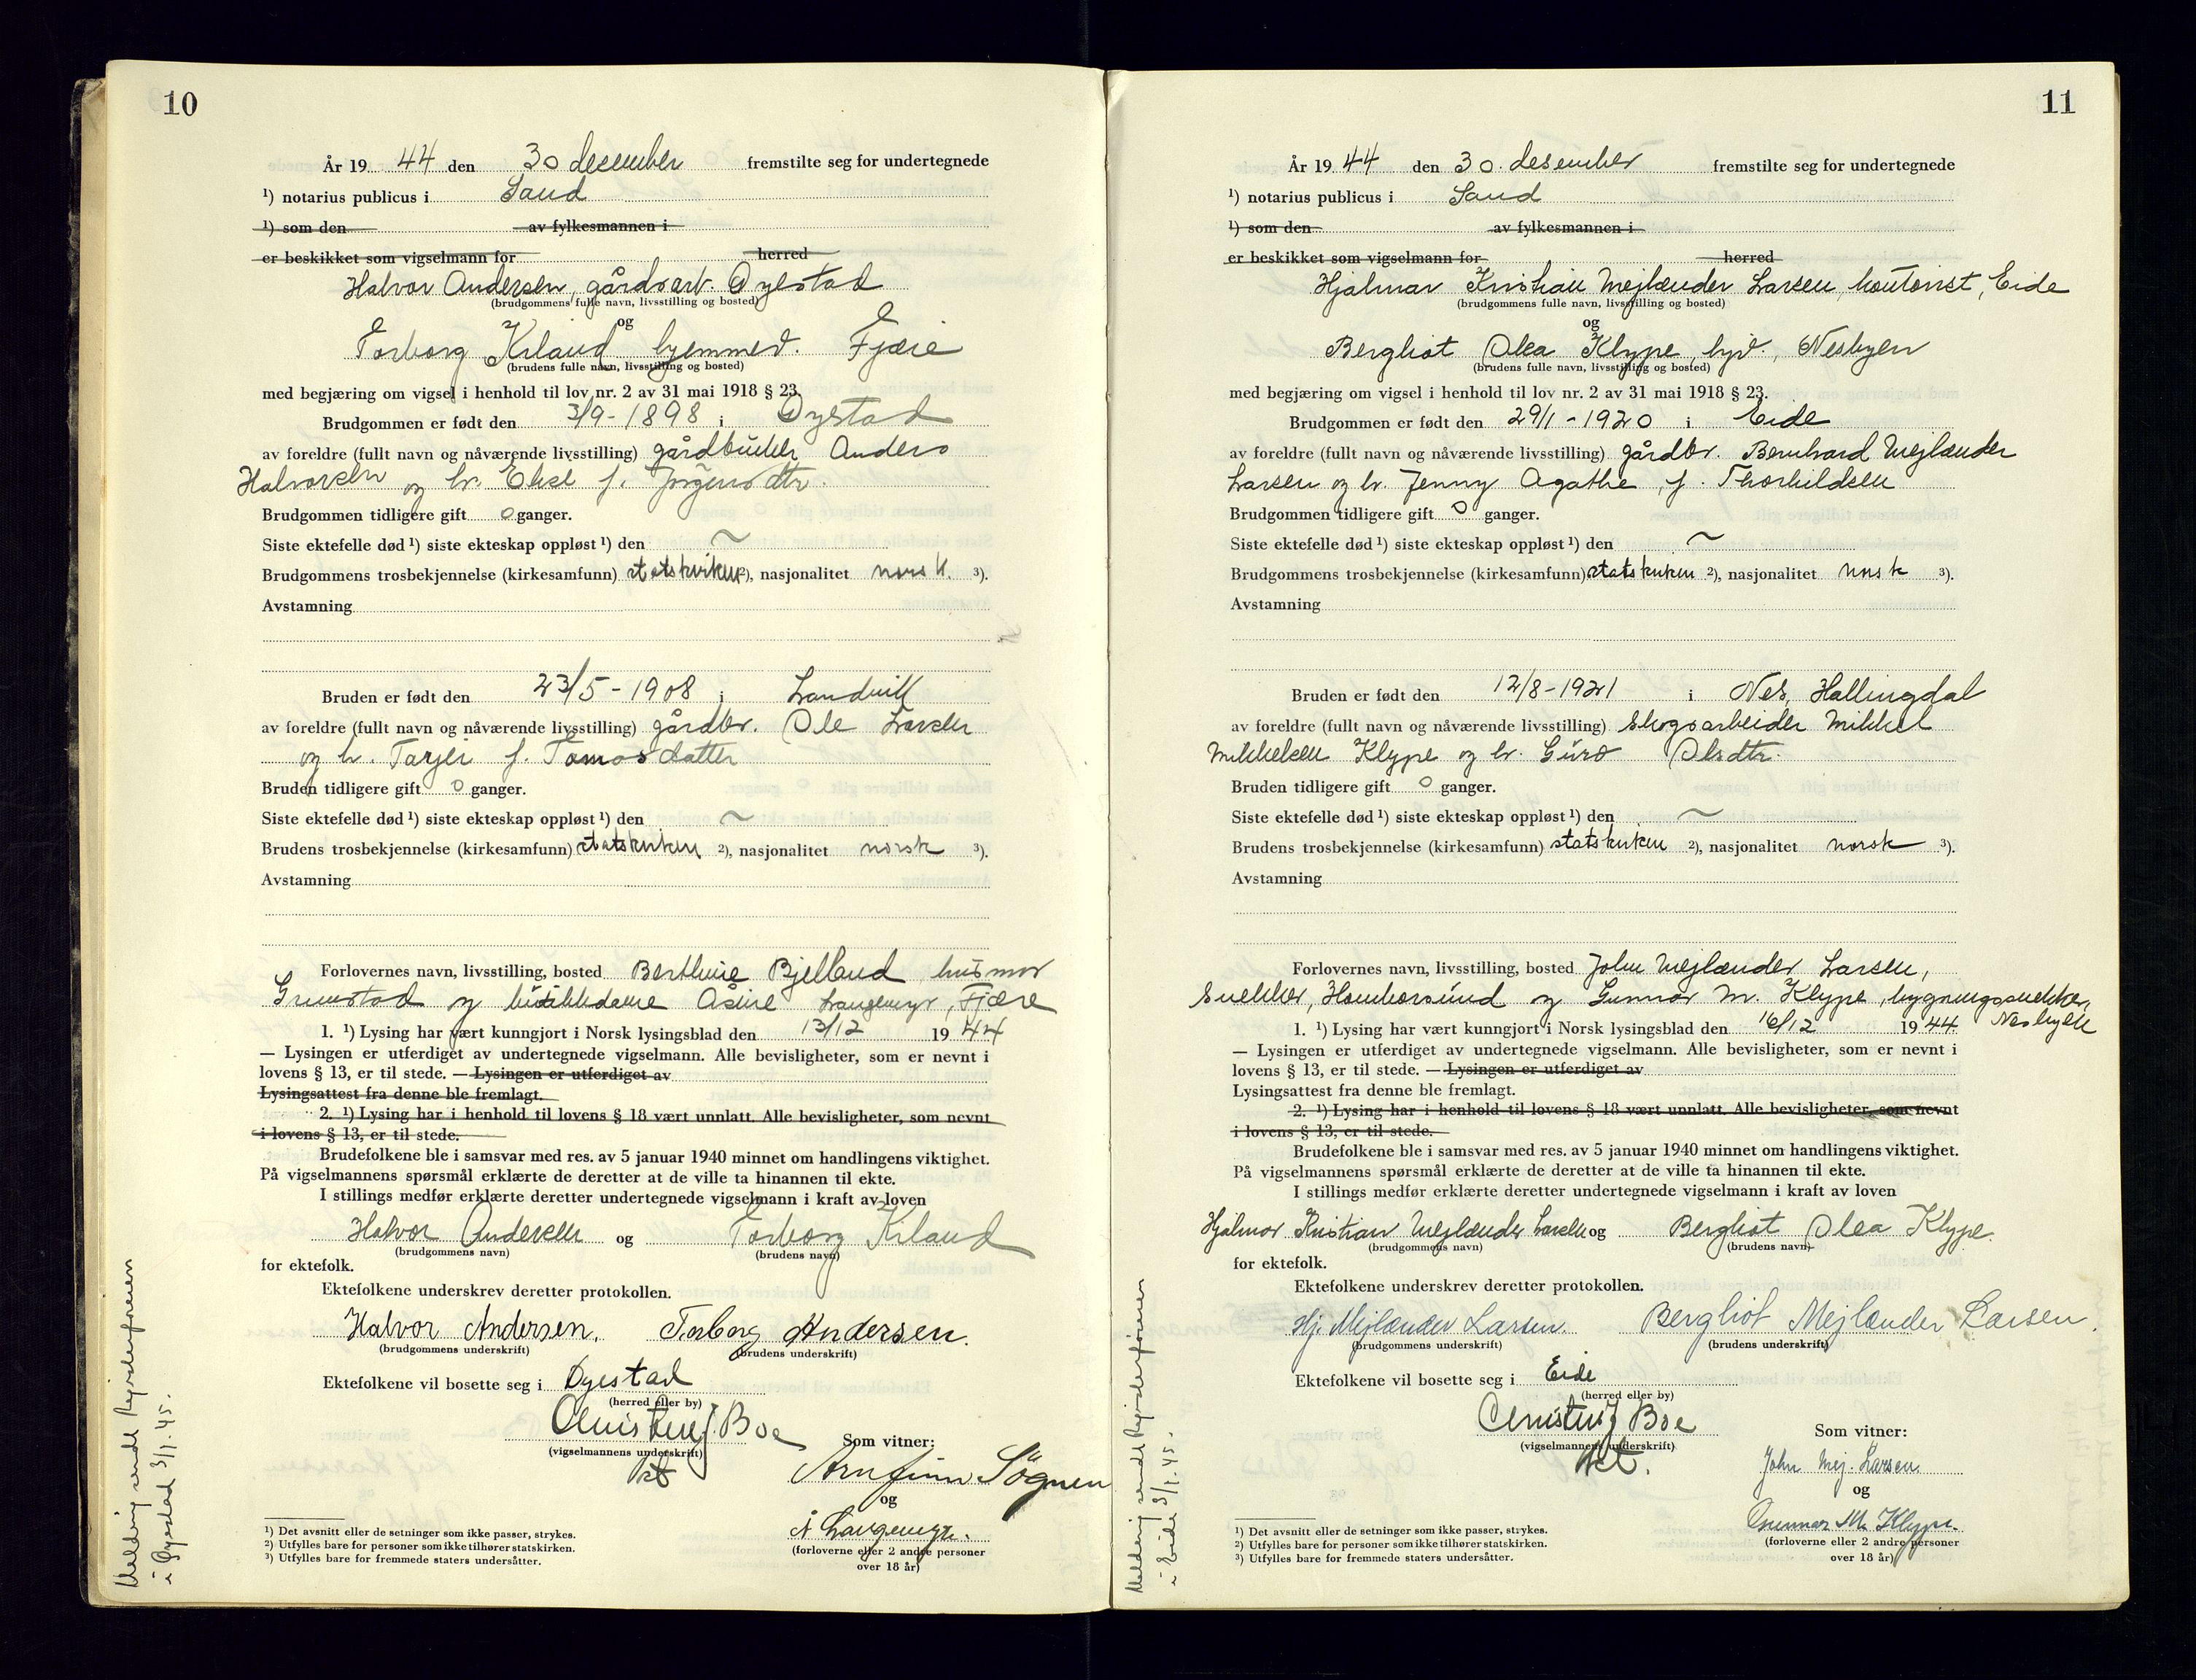 10
År 19 44 den 30 desember fremstilte seg for undertegnede
¹) notarius publicus i Sand
¹) som den av fylkesmannen i
er beskikket som vigselmann for herred
Halvor Andersen, gårdsarb. Øyestad
(brudgommens fulle navn, livsstilling og bosted)
og
Torborg Kiland hjemmev. Fjære
(brudens fulle navn, livsstilling og bosted)
med begjæring om vigsel i henhold til lov nr. 2 av 31 mai 1918 § 23.
Brudgommen er født den 3/9-1898 i Øyestad
av foreldre (fullt navn og nåværende livsstilling) gårdbruker Anders
Halvorsen og h. f. Jørgensdtr.
Brudgommen tidligere gift 0 ganger.
Siste ektefelle død ¹) siste ekteskap oppløst ¹) den ~
Brudgommens trosbekjennelse (kirkesamfunn) statskirken ²), nasjonalitet norsk ³).
Avstamning
Bruden er født den 23/5-1908 i Landvik
av foreldre (fullt navn og nåværende livsstilling) gårdbr. Ole Larsen
og h. Tarjer f. Tomasdatter
Bruden tidligere gift 0 ganger.
Siste ektefelle død ¹) siste ekteskap oppløst ¹) den ~
Brudens trosbekjennelse (kirkesamfunn) statskirken ²), nasjonalitet norsk ³).
Avstamning
Forlovernes navn, livsstilling, bosted Berthine Bjelland, husmor
Grimstad og butikkdame Åsine Langemyr, Fjære
1. ¹) Lysing har vært kunngjort i Norsk lysingsblad den 13/12 19 44
— Lysingen er utferdiget av undertegnede vigselmann. Alle bevisligheter, som er nevnt i
lovens § 13, er til stede. — Lysingen er utferdiget av
Lysingsattest fra denne ble fremlagt.
2. ¹) Lysing har i henhold til lovens § 18 vært unnlatt. Alle bevisligheter, som nevnt
i lovens § 13, er til stede.
Brudefolkene ble i samsvar med res. av 5 januar 1940 minnet om handlingens viktighet.
På vigselmannens spørsmål erklærte de deretter at de ville ta hinannen til ekte.
I stillings medfør erklærte deretter undertegnede vigselmann i kraft av loven
Halvor Andersen og Torborg Kiland
(brudgommens navn) (brudens navn)
for ektefolk.
Ektefolkene underskrev deretter protokollen.
Halvor Andersen. Torborg Andersen.
(brudgommens underskrift) (brudens underskrift)
Ektefolkene vil bosette seg i Øyestad
(herred eller by)
Christen J. Boe
(vigselmannens underskrift)
kst
Som vitner:
Arnfinn Sögnen
og
Å Langemyr.
(forloverne eller 2 andre personer
over 18 år)
¹) Det avsnitt eller de setninger som ikke passer, strykes.
²) Utfylles bare for personer som ikke tilhører statskirken.
³) Utfylles bare for fremmede staters undersåtter.
Melding sendt Registerføreren
i Øyestad 3/1.45.
11
År 19 44 den 30. desember fremstilte seg for undertegnede
¹) notarius publicus i Sand
¹) som den av fylkesmannen i
er beskikket som vigselmann for herred
Hjalmar Kristian Mejlænder Larsen, kontorist, Eide
(brudgommens fulle navn, livsstilling og bosted)
og
Bergliot Olea Klype, hjv., Nesbyen
(brudens fulle navn, livsstilling og bosted)
med begjæring om vigsel i henhold til lov nr. 2 av 31 mai 1918 § 23.
Brudgommen er født den 29/1-1920 i Eide
av foreldre (fullt navn og nåværende livsstilling) gårdbr. Bernhard Mejlænder
Larsen og h. Jenny Agathe, f. Thorkildsen
Brudgommen tidligere gift 0 ganger.
Siste ektefelle død ¹) siste ekteskap oppløst ¹) den ~
Brudgommens trosbekjennelse (kirkesamfunn) statskirken ²), nasjonalitet norsk ³).
Avstamning
Bruden er født den 12/8-1921 i Nes, Hallingdal
av foreldre (fullt navn og nåværende livsstilling) skogsarbeider Mikkel
Mikkelsen Klype og h. Guro Olsdtr.
Bruden tidligere gift 0 ganger.
Siste ektefelle død ¹) siste ekteskap oppløst ¹) den ~
Brudens trosbekjennelse (kirkesamfunn) statskirken ²), nasjonalitet norsk ³).
Avstamning
Forlovernes navn, livsstilling, bosted John Mejlænder Larsen,
snekker, Homborsund og Gunnar M. Klype, bygningssnekker,
Nesbyen
1. ¹) Lysing har vært kunngjort i Norsk lysingsblad den 16/12 19 44
— Lysingen er utferdiget av undertegnede vigselmann. Alle bevisligheter, som er nevnt i
lovens § 13, er til stede. — Lysingen er utferdiget av
Lysingsattest fra denne ble fremlagt.
2. ¹) Lysing har i henhold til lovens § 18 vært unnlatt. Alle bevisligheter, som nevnt
i lovens § 13, er til stede.
Brudefolkene ble i samsvar med res. av 5 januar 1940 minnet om handlingens viktighet.
På vigselmannens spørsmål erklærte de deretter at de ville ta hinannen til ekte.
I stillings medfør erklærte deretter undertegnede vigselmann i kraft av loven
Hjalmar Kristian Mejlænder Larsen og Bergliot Olea Klype.
(brudgommens navn) (brudens navn)
for ektefolk.
Ektefolkene underskrev deretter protokollen.
Hj. Mejlænder Larsen. Bergliot Mejlænder Larsen.
(brudgommens underskrift) (brudens underskrift)
Ektefolkene vil bosette seg i Eide
(herred eller by)
Christen J Boe
(vigselmannens underskrift)
kst.
Som vitner:
John Mej. Larsen
og
Gunnar M. Klype.
(forloverne eller 2 andre personer
over 18 år)
¹) Det avsnitt eller de setninger som ikke passer, strykes.
²) Utfylles bare for personer som ikke tilhører statskirken.
³) Utfylles bare for fremmede staters undersåtter.
Melding sendt Registerføreren
i Eide 3/1.45.